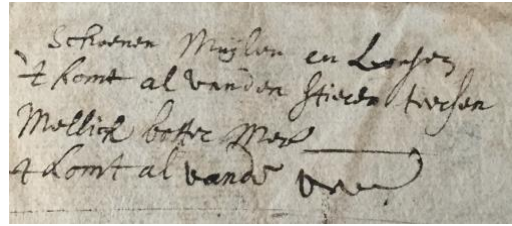 Schoenen Muijlen en Leersen
't komt al vanden stieren keersen
Mellick botter Mer
't komt al vande